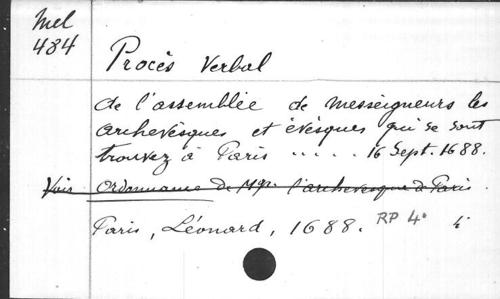 Mel
484
Procès Verbal
de l'assemblée de messeigneurs les
archevêsques et évêsques qui se sont
trouvez à Paris ..... 16 Sept. 1688.
Vois ordonnance de Mgr. l'archevesque de Paris.
Paris, Léonard, 1688. RP 4°